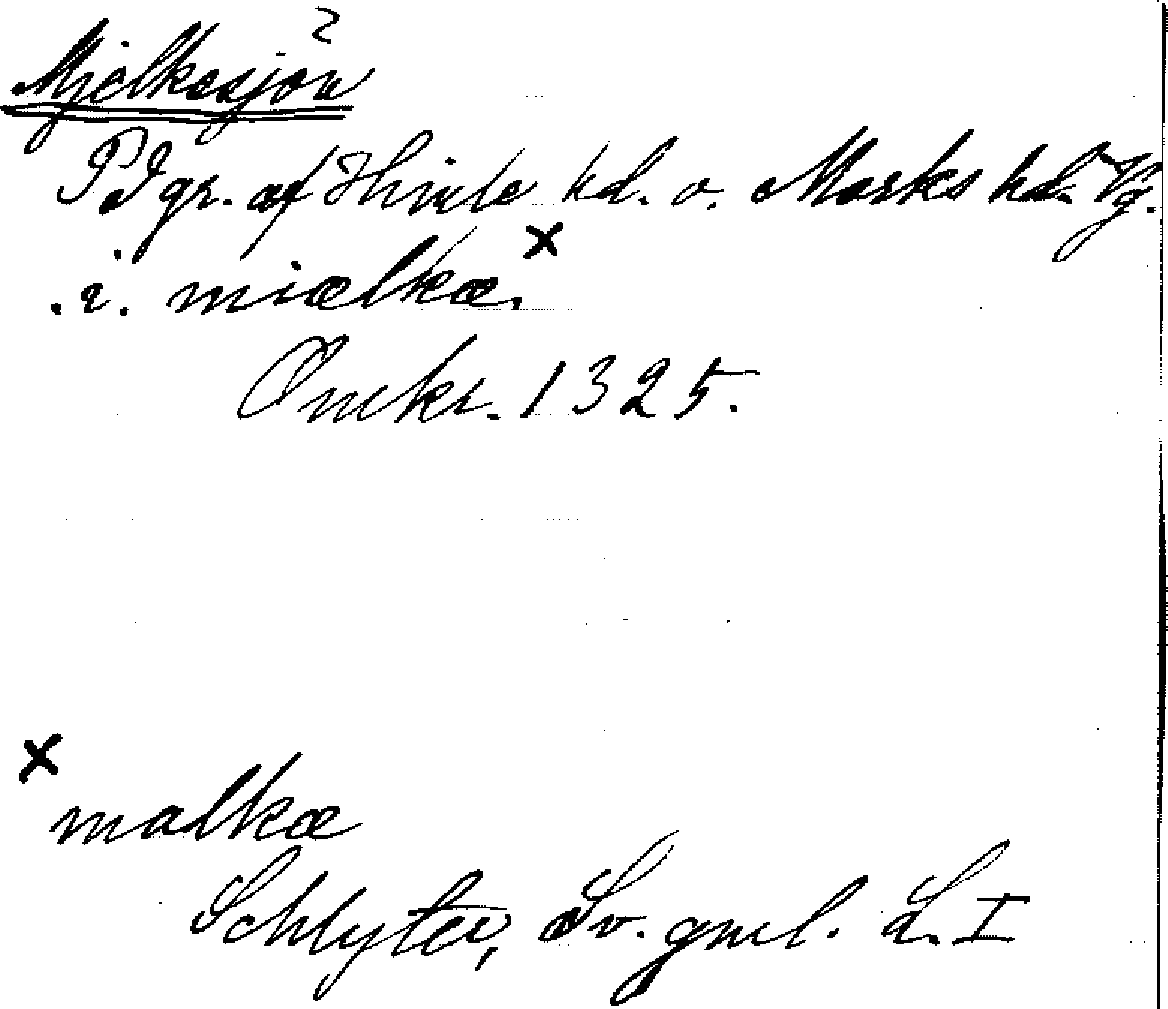 2
Mjelkesjön
På gr. af Himle hd. o. Marks hd. Vg.
.i. miælkæ. x
Omkr. 1325.
x
malkæ
Schlyter, Sv. gml. L. I